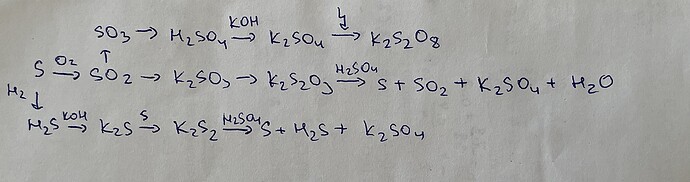 SO3 → H2SO4 KOH→ K2SO4 → K2S2O8
S O2→ SO2 → K2SO3 → K2S2O3 H2SO4→ S + SO2 + K2SO4 + H2O
H2↓
H2S KOH→ K2S S→ K2S2 H2SO4→ S + H2S + K2SO4